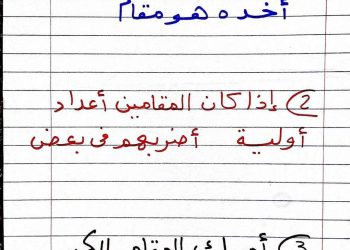 أخده هو مقام
2) إذا كان المقامين أعداد
أولية أضربهم فى بعض
3)